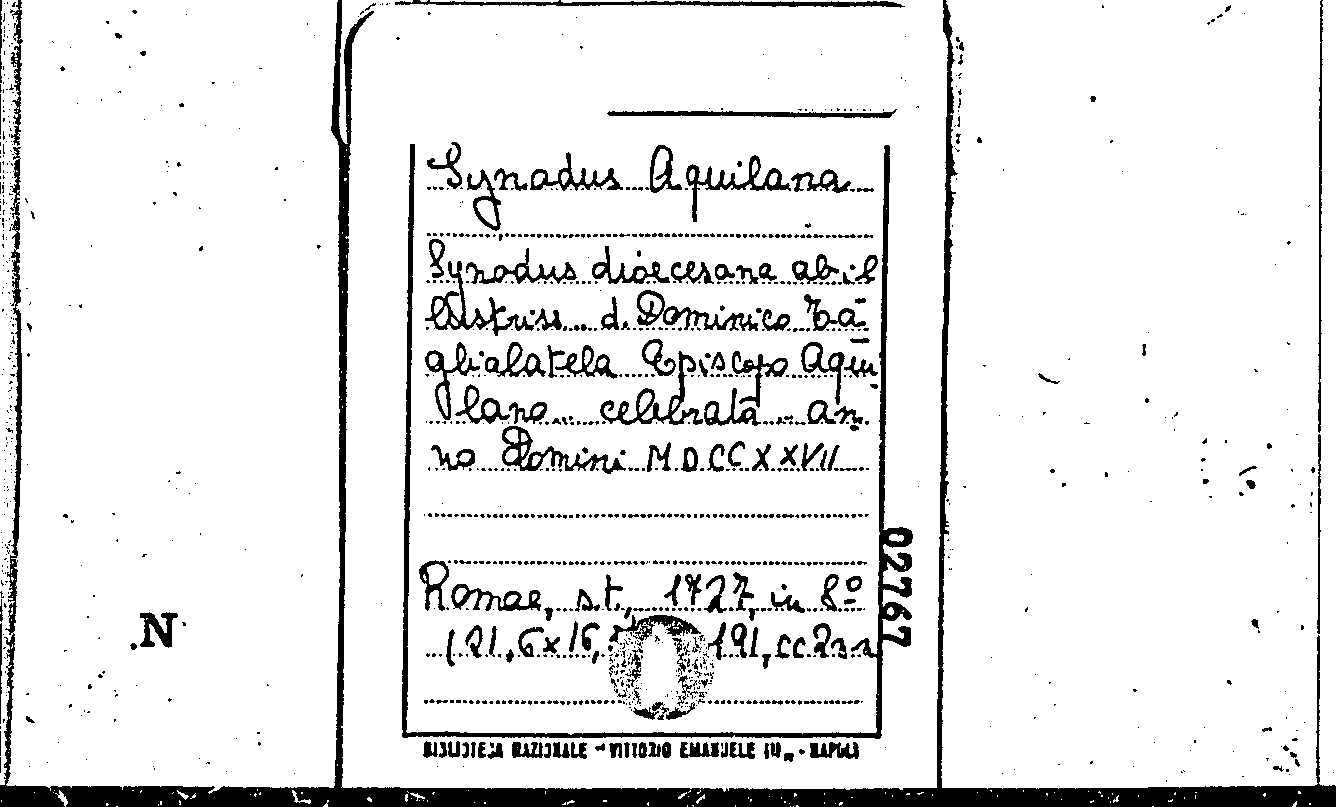 Synodus Aquilana
Synodus dioecesana ab il
lustriss. d. Dominico Ta
glialatela Episcopo Aqui
lano celebrata an
no Domini MDCCXXVII
Romae, s.t., 1727, in 8º
(21,6x16, 191, cc2nn
02767
.N
BIBLIOTECA NAZIONALE - VITTORIO EMANUELE III„ - NAPOLI